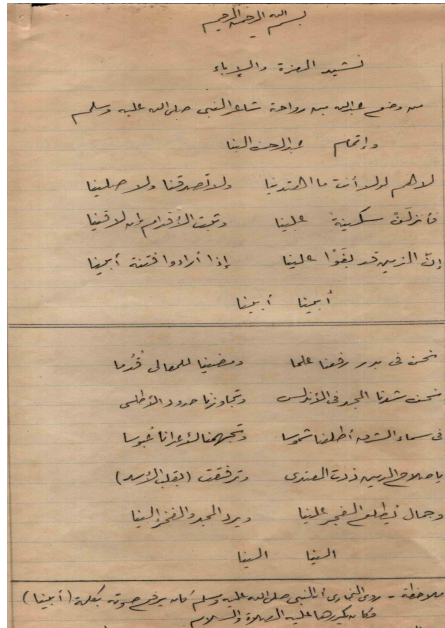 بسم الله الرحمن الرحيم
نشيد العزة والإباء
من وضع عبد الله بن رواحة شاعر النبي صلى الله عليه وسلم
وإتمام عبد الرحمن البنا
لاهم لولا أنت ما اهتدينا ولا تصدقنا ولا صلينا
فأنزلن سكينة علينا وثبت الأقدام إن لاقينا
إن الذين قد بغوا علينا إذا أرادوا فتنة أبينا
أبينا أبينا
نحن في بدر رفعنا علما ومضينا للمعالي قدما
نحن شدنا المجد في الأندلس وتجاوزنا حدود الأطلس
في سماء الشرق أطلعنا شموسا وتجهمنا لأعدانا عبوسا
يا صلاح الدين ذدت المعتدي وترفقت (بقلب الأسد)
وجمال يطلع الفجر علينا ويرد المجد والفخر إلينا
إلينا إلينا
ملاحظة - روى البخاري أن النبي صلى الله عليه وسلم كان يرفع صوته بكلمة (أبينا)
فكان يكررها عليه الصلاة والسلام